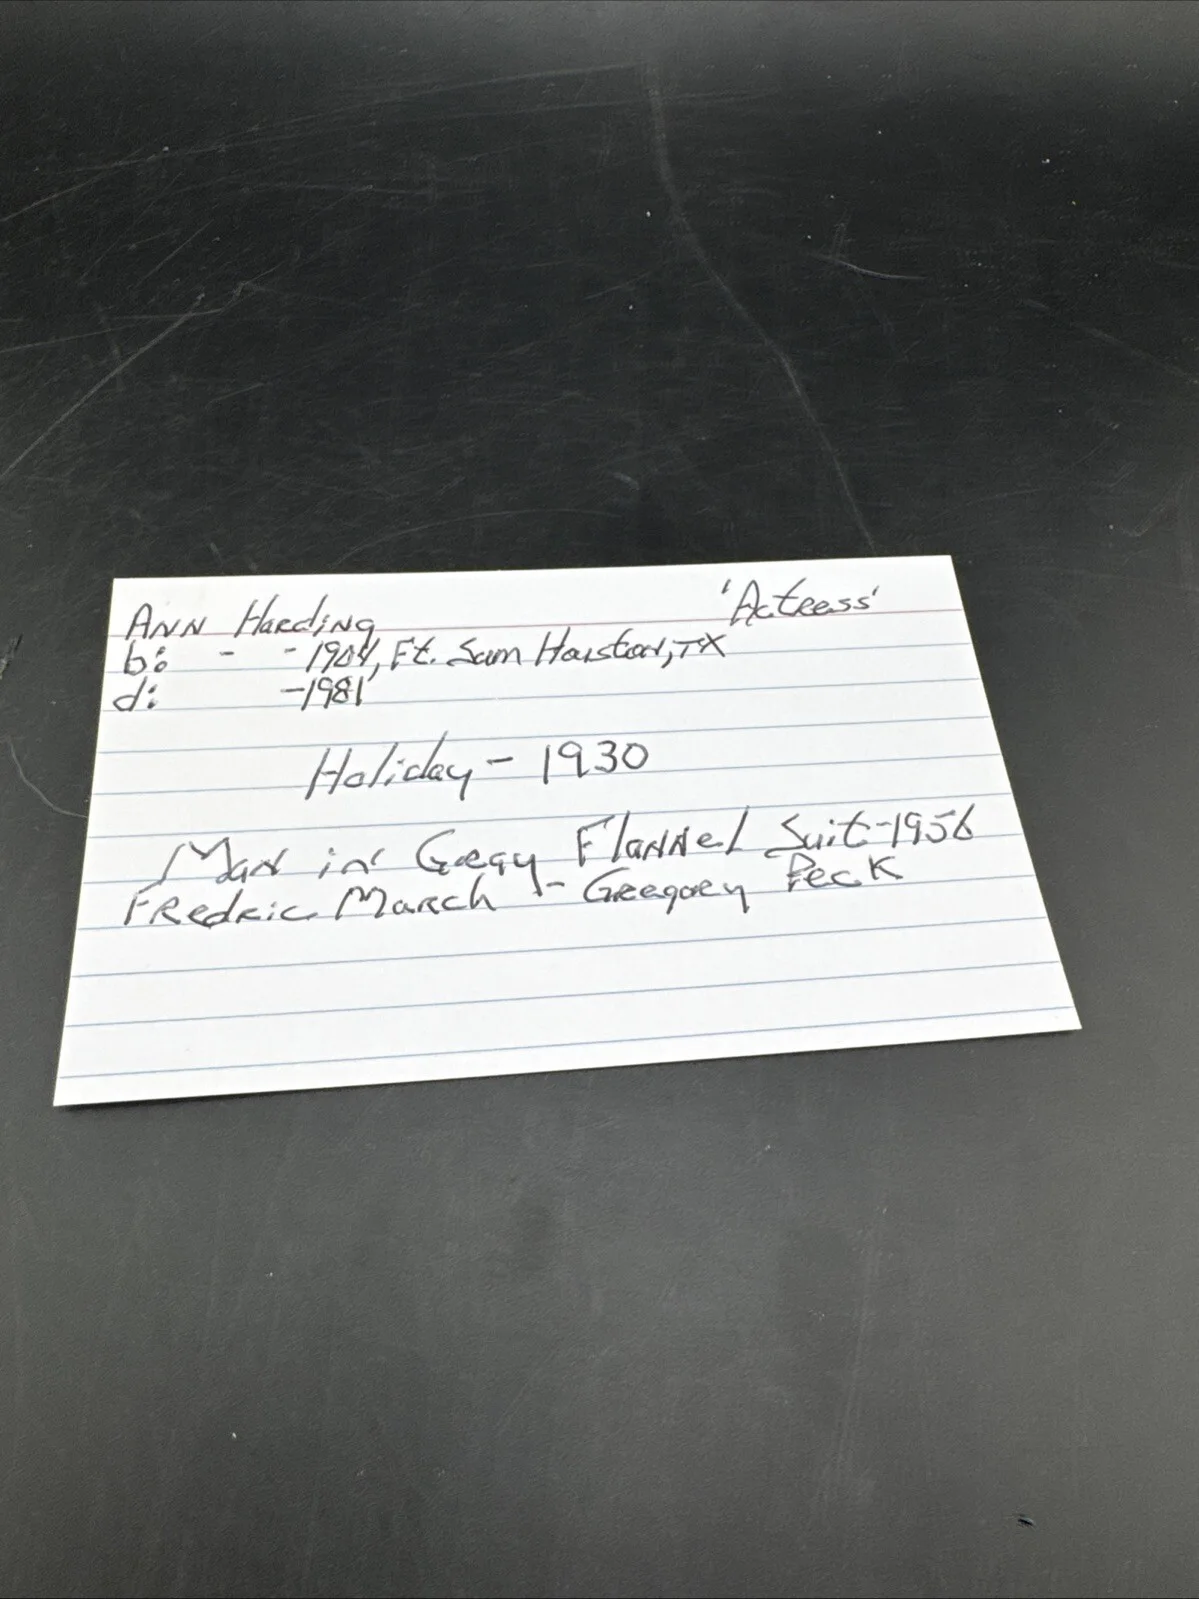 Ann Harding 'Actress'
b: - -1904, Ft. Sam Houston, TX
d: -1981
Holiday - 1930
Man in Gray Flannel Suit-1956
Fredric March - Gregory Peck